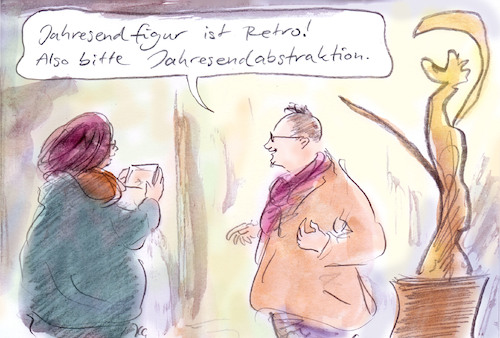 Jahresendfigur ist Retro!
Also bitte Jahresendabstraktion.